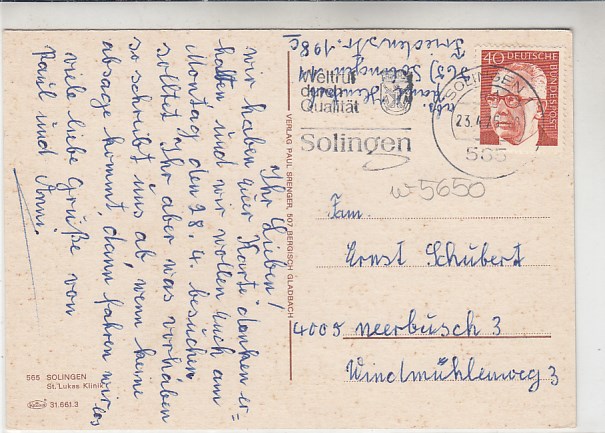 Ihr Lieben!
wir haben euer Karte danken er=
halten und wir wollen euch am
Montag den 28. 4. besuchen
solltet Ihr aber was vorhaben
so schreibt uns ab, wenn keine
absage kommt, dann fahren wir los
viele liebe Grüße von
Paul und Anni.
565 SOLINGEN
St. Lukas Klinik
31.661.3
VERLAG PAUL SRENGER, 507 BERGISCH GLADBACH
abs. Paul
565 Solingen 1
Friedenstr. 198c
Weltruf
durch
Qualität
Solingen
SOLINGEN
23.4.76
565
40 DEUTSCHE
BUNDESPOST
w-5650
Fam.
Ernst Schubert
4005 Meerbusch 3
Windmühlenweg 3